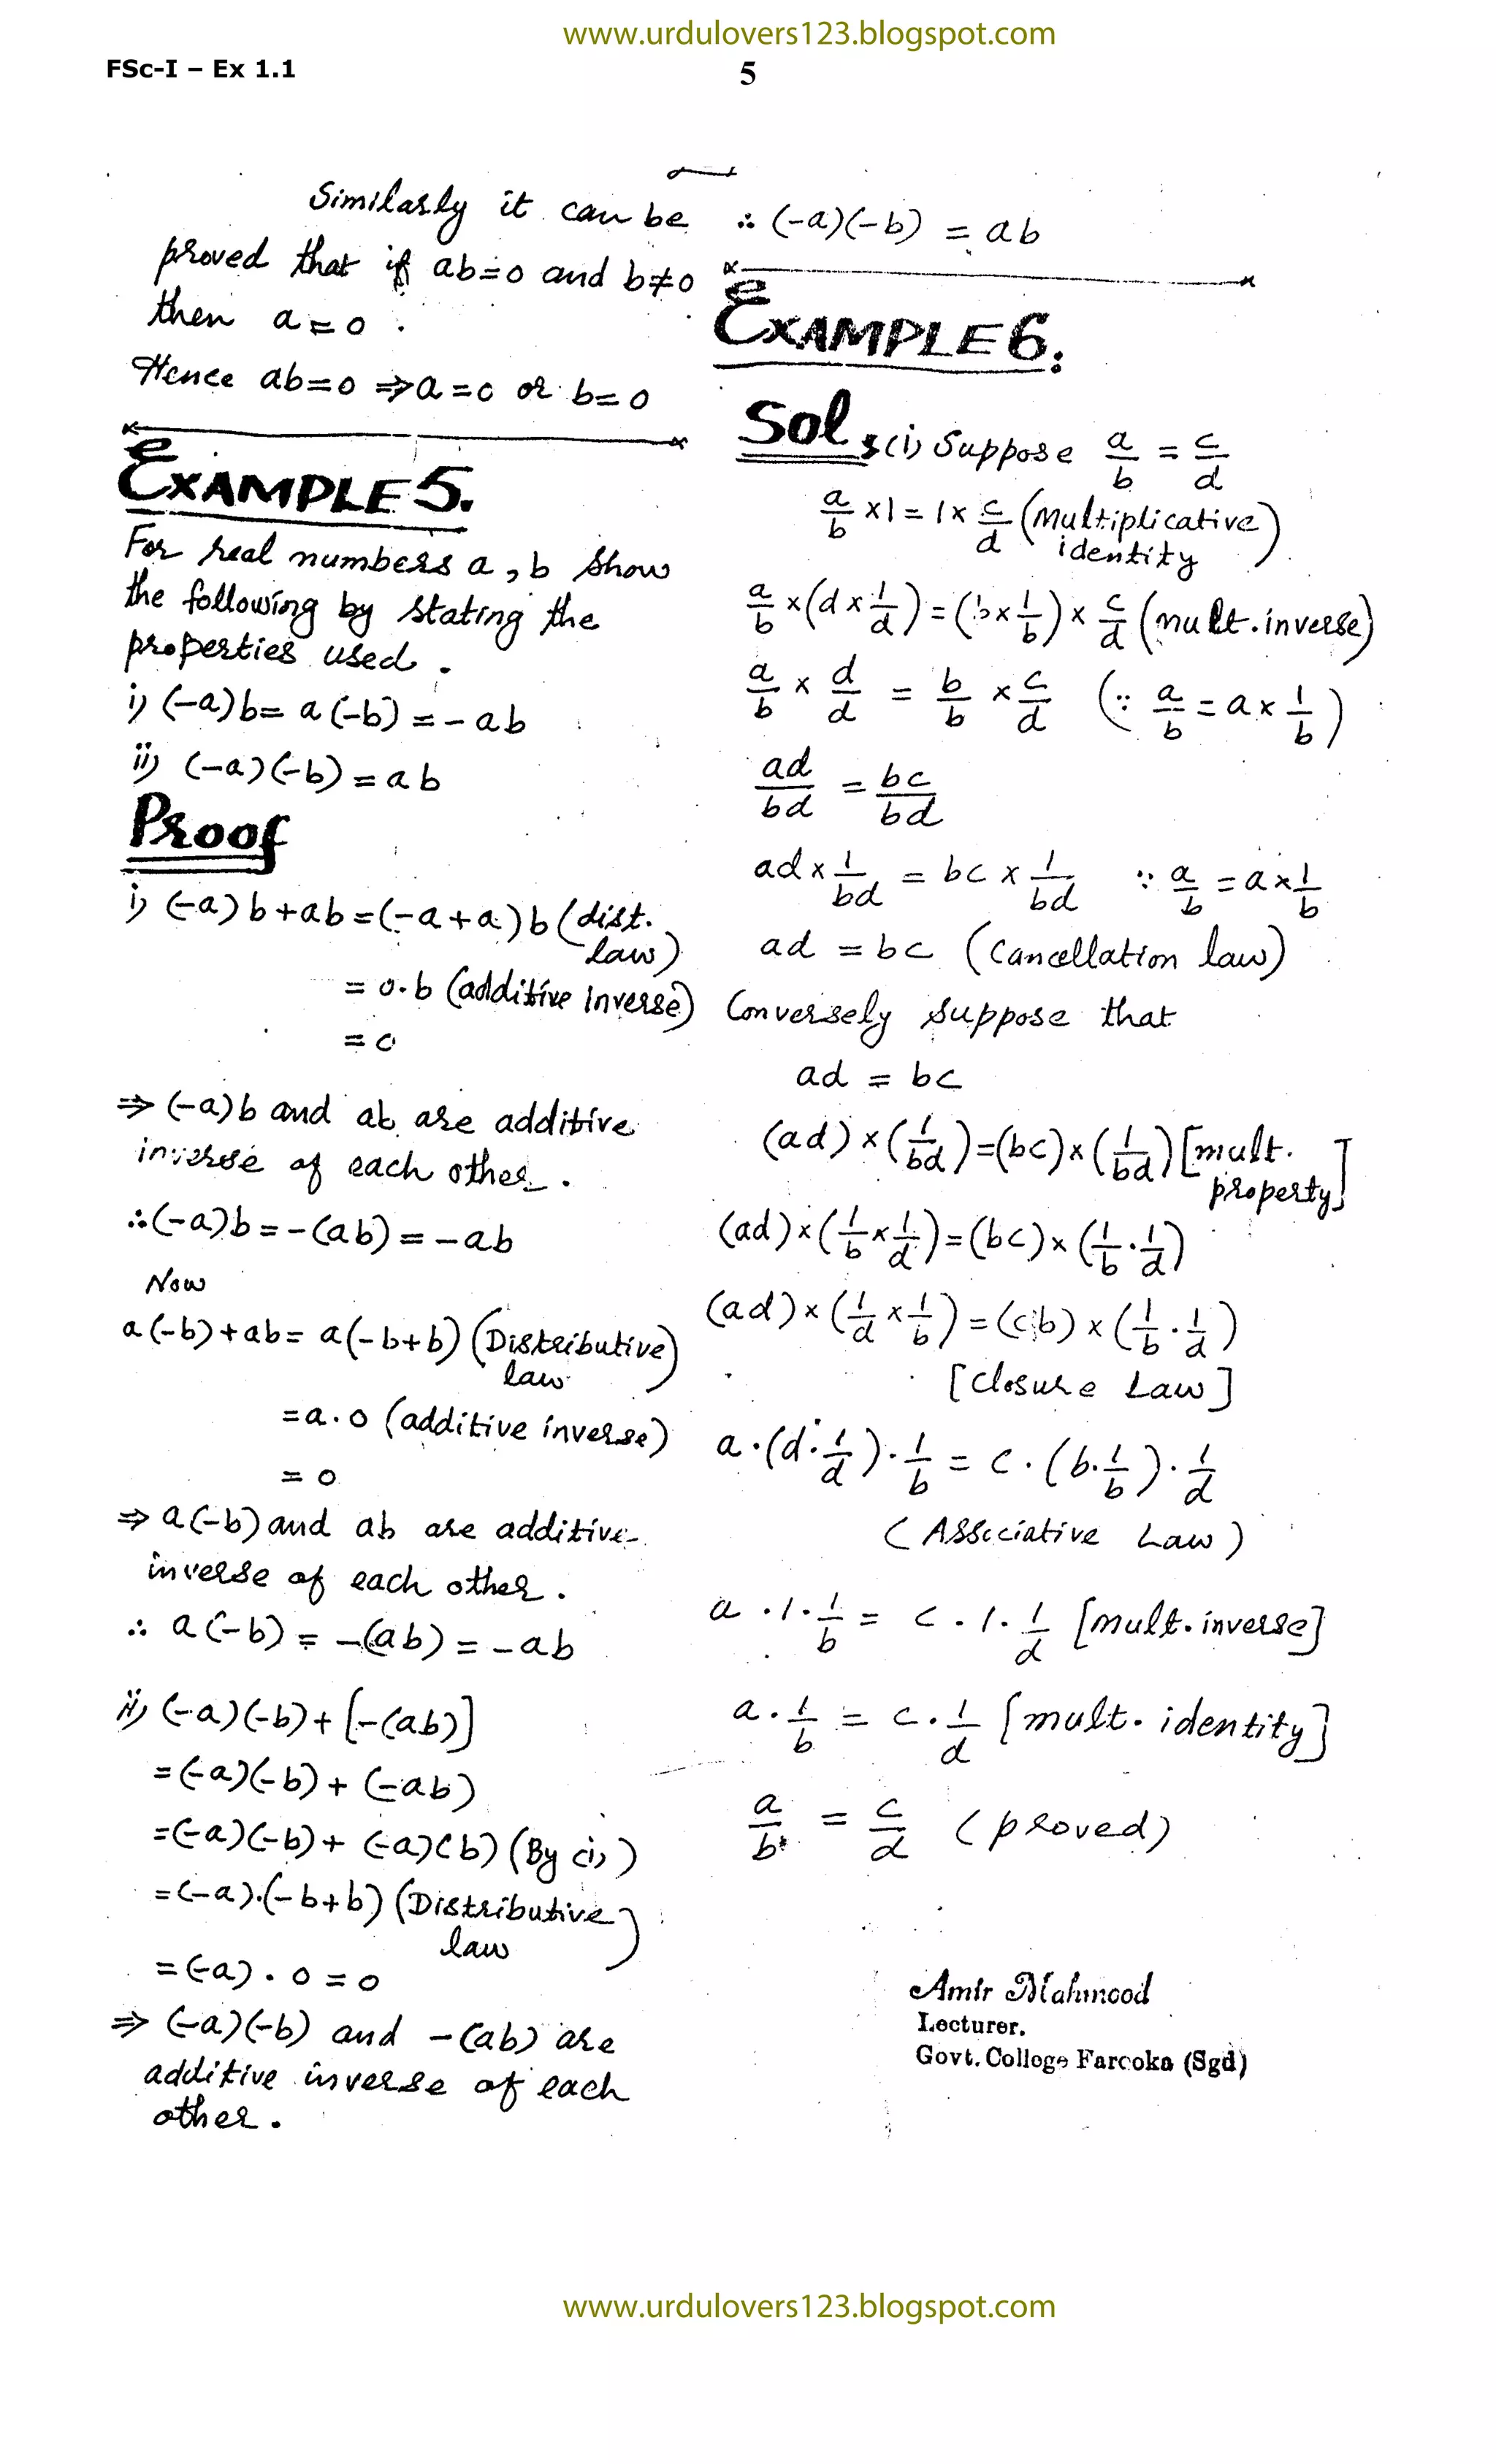 www.urdulovers123.blogspot.com
FSc-I – Ex 1.1
5
Similarly it can be
proved that if ab=0 and b≠0
then a=0.
Hence ab=0 ⇒a=0 or b=0
EXAMPLE 5.
For real numbers a, b show
the following by stating the
properties used.
i) (-a)b= a(-b) = -ab
ii) (-a)(-b) = ab
Proof
i) (-a)b+ab=(-a+a)b (dist. law)
= 0.b (additive Inverse)
= 0
⇒ (-a)b and ab are additive
inverse of each other.
∴(-a)b = -(ab) = -ab
Now
a(-b)+ab= a(-b+b) (Distributive law)
=a.0 (additive inverse)
= 0
⇒ a(-b) and ab are additive
inverse of each other.
∴ a(-b) = -(ab) = -ab
ii) (-a)(-b)+[-(ab)]
=(-a)(-b)+(-ab)
=(-a)(-b)+(-a)(b) (By (i))
=(-a).(-b+b) (Distributive law)
=(-a).0=0
⇒ (-a)(-b) and -(ab) are
additive inverse of each
other.
∴ (-a)(-b) = ab
EXAMPLE 6.
Sol; (i) Suppose a/b = c/d
a/b x1 = 1x c/d (Multiplicative identity)
a/b x(d x 1/d) = (b x 1/b) x c/d (mult. inverse)
a/b x d/d = b/b x c/d (∵ a/b = a x 1/b)
ad/bd = bc/bd
ad x 1/bd = bc x 1/bd ∵ a/b = a x 1/b
ad = bc (Cancellation law)
Conversely suppose that
ad = bc
(ad) x (1/bd) = (bc) x (1/bd) [mult. property]
(ad) x (1/b x 1/d) = (bc) x (1/b . 1/d)
(ad) x (1/d x 1/b) = (cb) x (1/b . 1/d)
[Closure Law]
a.(d. 1/d). 1/b = c.(b. 1/b). 1/d
(Associative Law)
a . 1 . 1/b = c . 1 . 1/d [mult. inverse]
a . 1/b = c . 1/d [mult. identity]
a/b = c/d (proved)
Amir Mahmood
Lecturer.
Govt. College Farooka (Sgd)
www.urdulovers123.blogspot.com